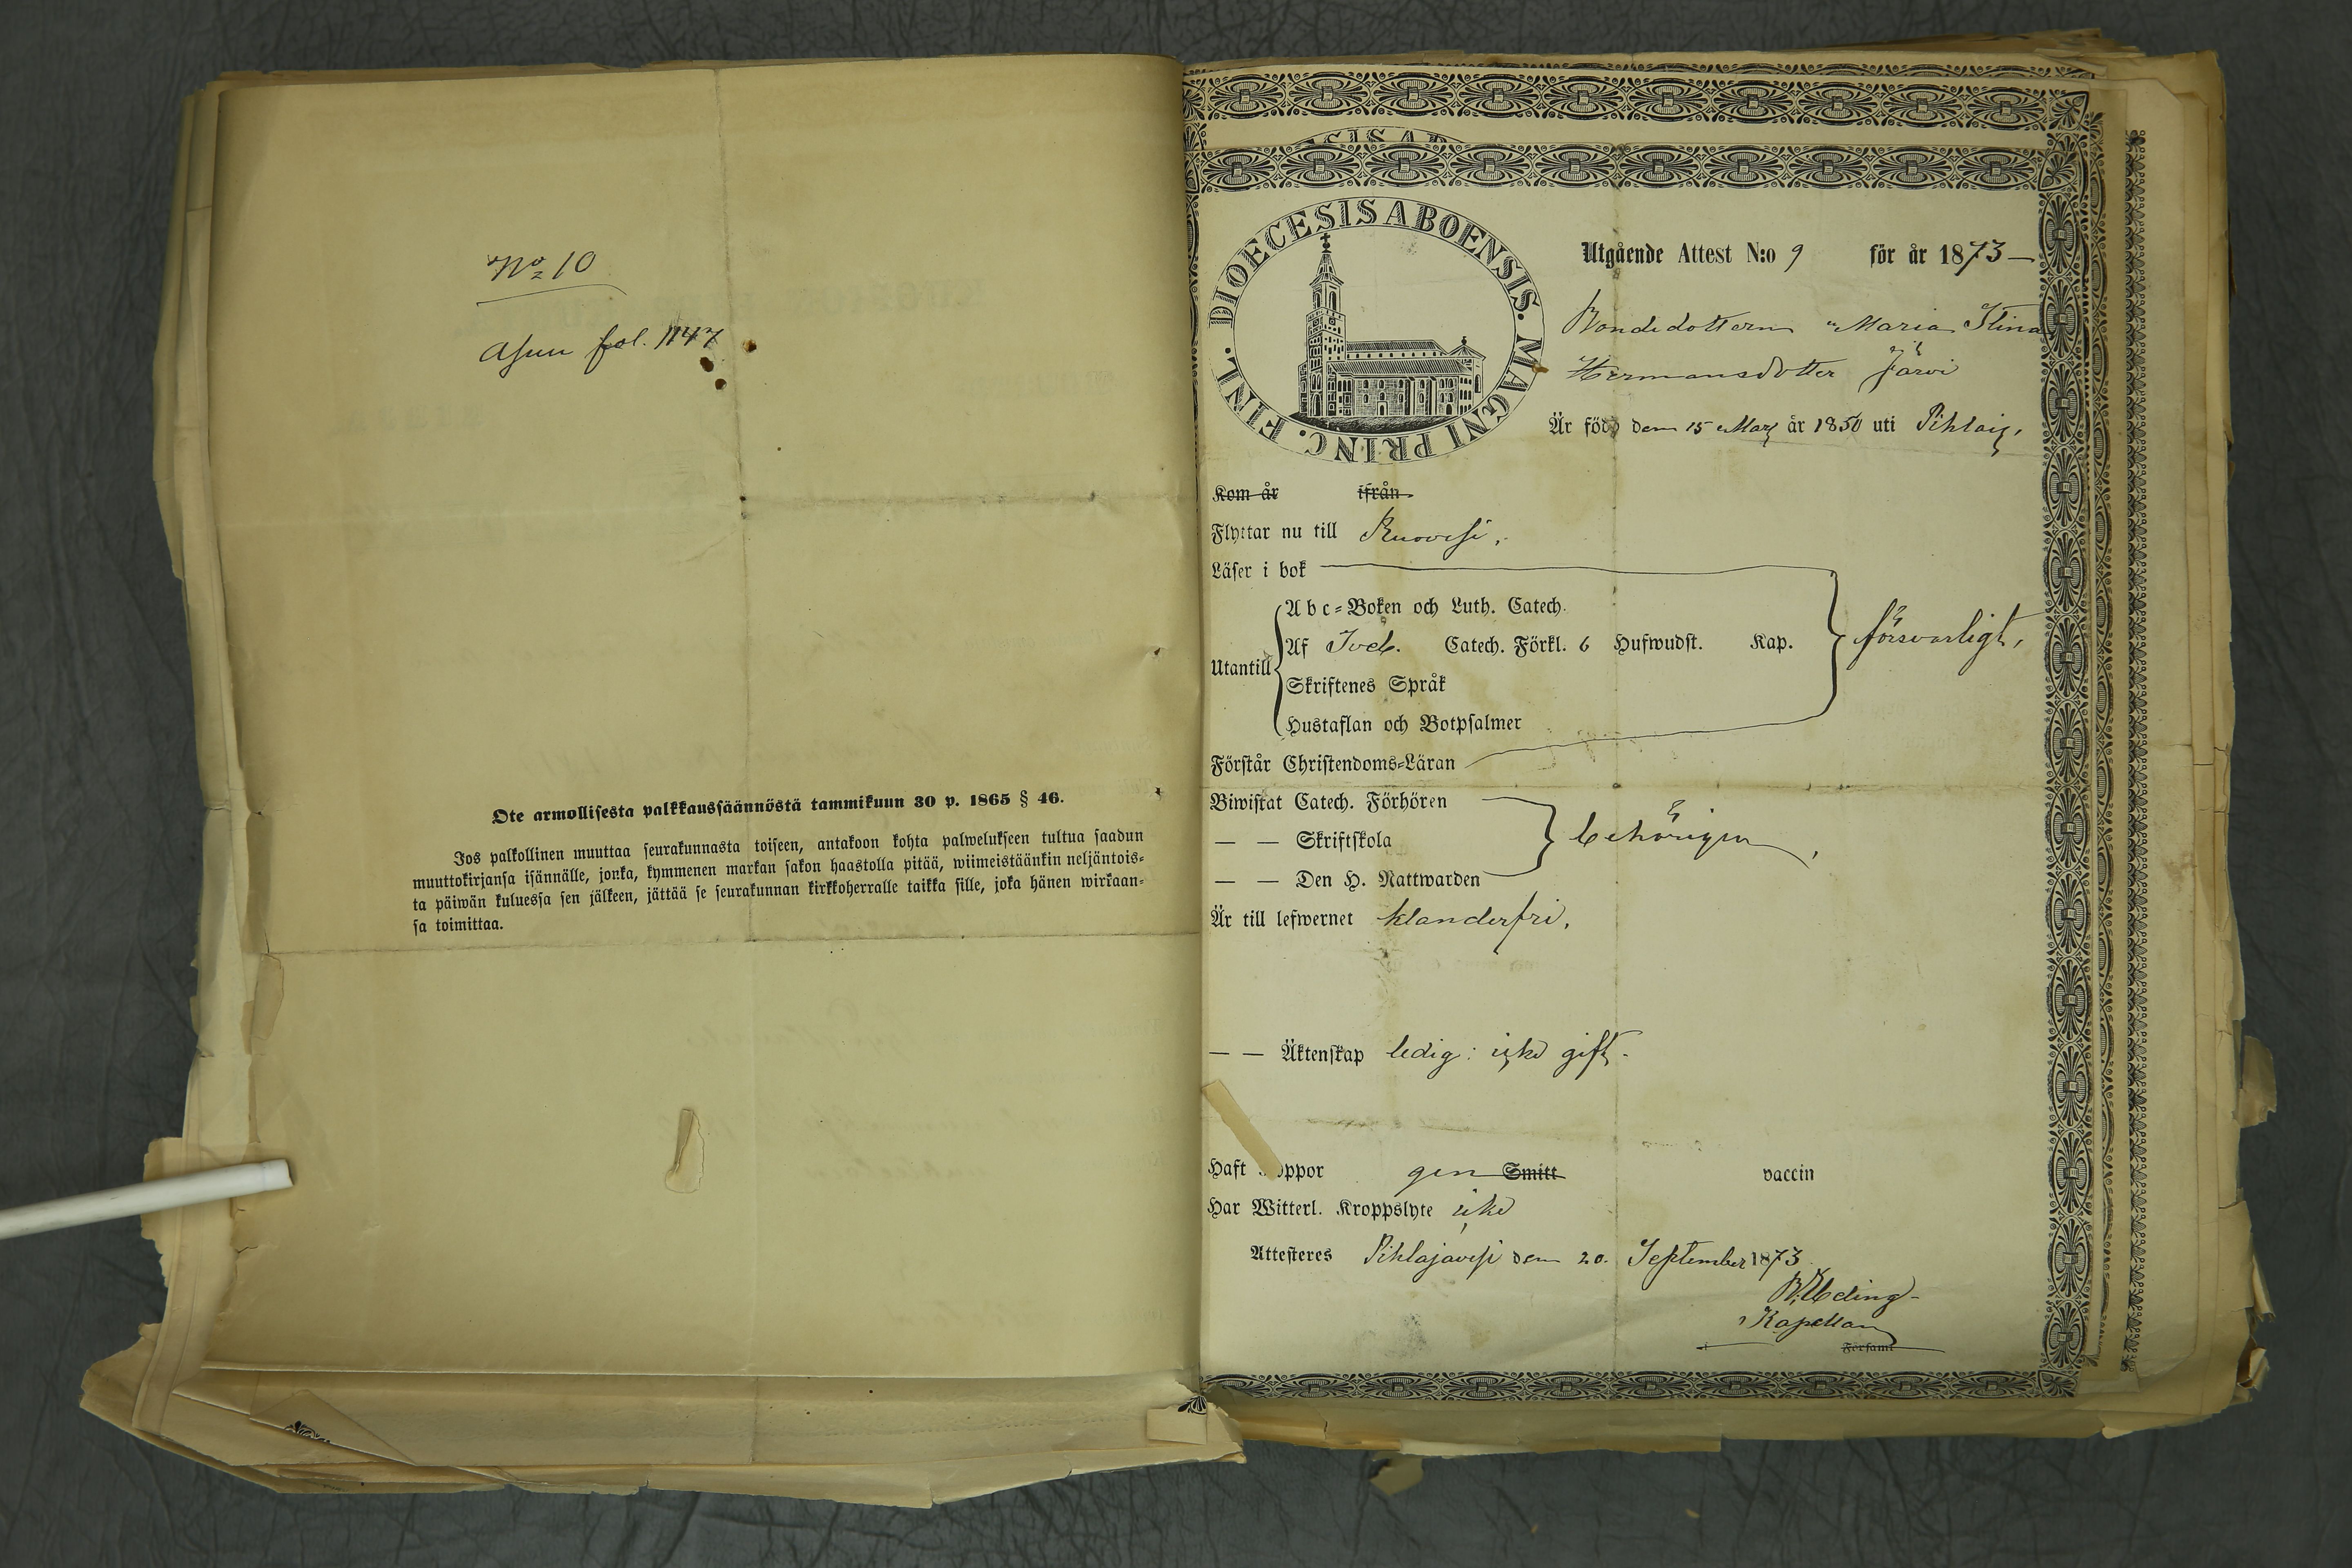 No 10
Asuu fol. 1147
Ote armollisesta palkkaussäännöstä tammikuun 30 p. 1865 § 46.
Jos palkollinen muuttaa seurakunnasta toiseen, antakoon kohta palwelukseen tultua saadun
muuttokirjansa isännälle, jonka, kymmenen markan sakon haastolla pitää, wiimeistäänkin neljäntois-
ta päiwän kuluessa sen jälkeen, jättää se seurakunnan kirkkoherralle taikka sille, joka hänen wirkaan-
sa toimittaa.
DIOECESIS ABOENSIS. MAGNI PRINC. FINL.
Utgående Attest N:o 9 för år 1873
Bondedottern Maria Stina
Hermansdotter Järvi
Är född den 15 Mars år 1850 uti Pihlaj.
Kom år ifrån
Flyttar nu till Ruovesi.
Läser i bok
Utantill
Abc-Boken och Luth. Catech.
Af Sveb. Catech. Förkl. 6 Hufwudst. Kap.
försvarligt,
Skriftenes Språk
Hustaflan och Botpsalmer
Förstår Christendoms-Läran
Biwistat Catech. Förhören
— — Skriftskola behörigen,
— — Den H. Nattwarden
Är till lefwernet klanderfri.
— — Äktenskap ledig: icke gift.
Haft oppor gen Smitt vaccin
Har Witterl. Kroppslyte icke
Attesteres Pihlajavesi den 20. September 1873
Kapellan
Församl